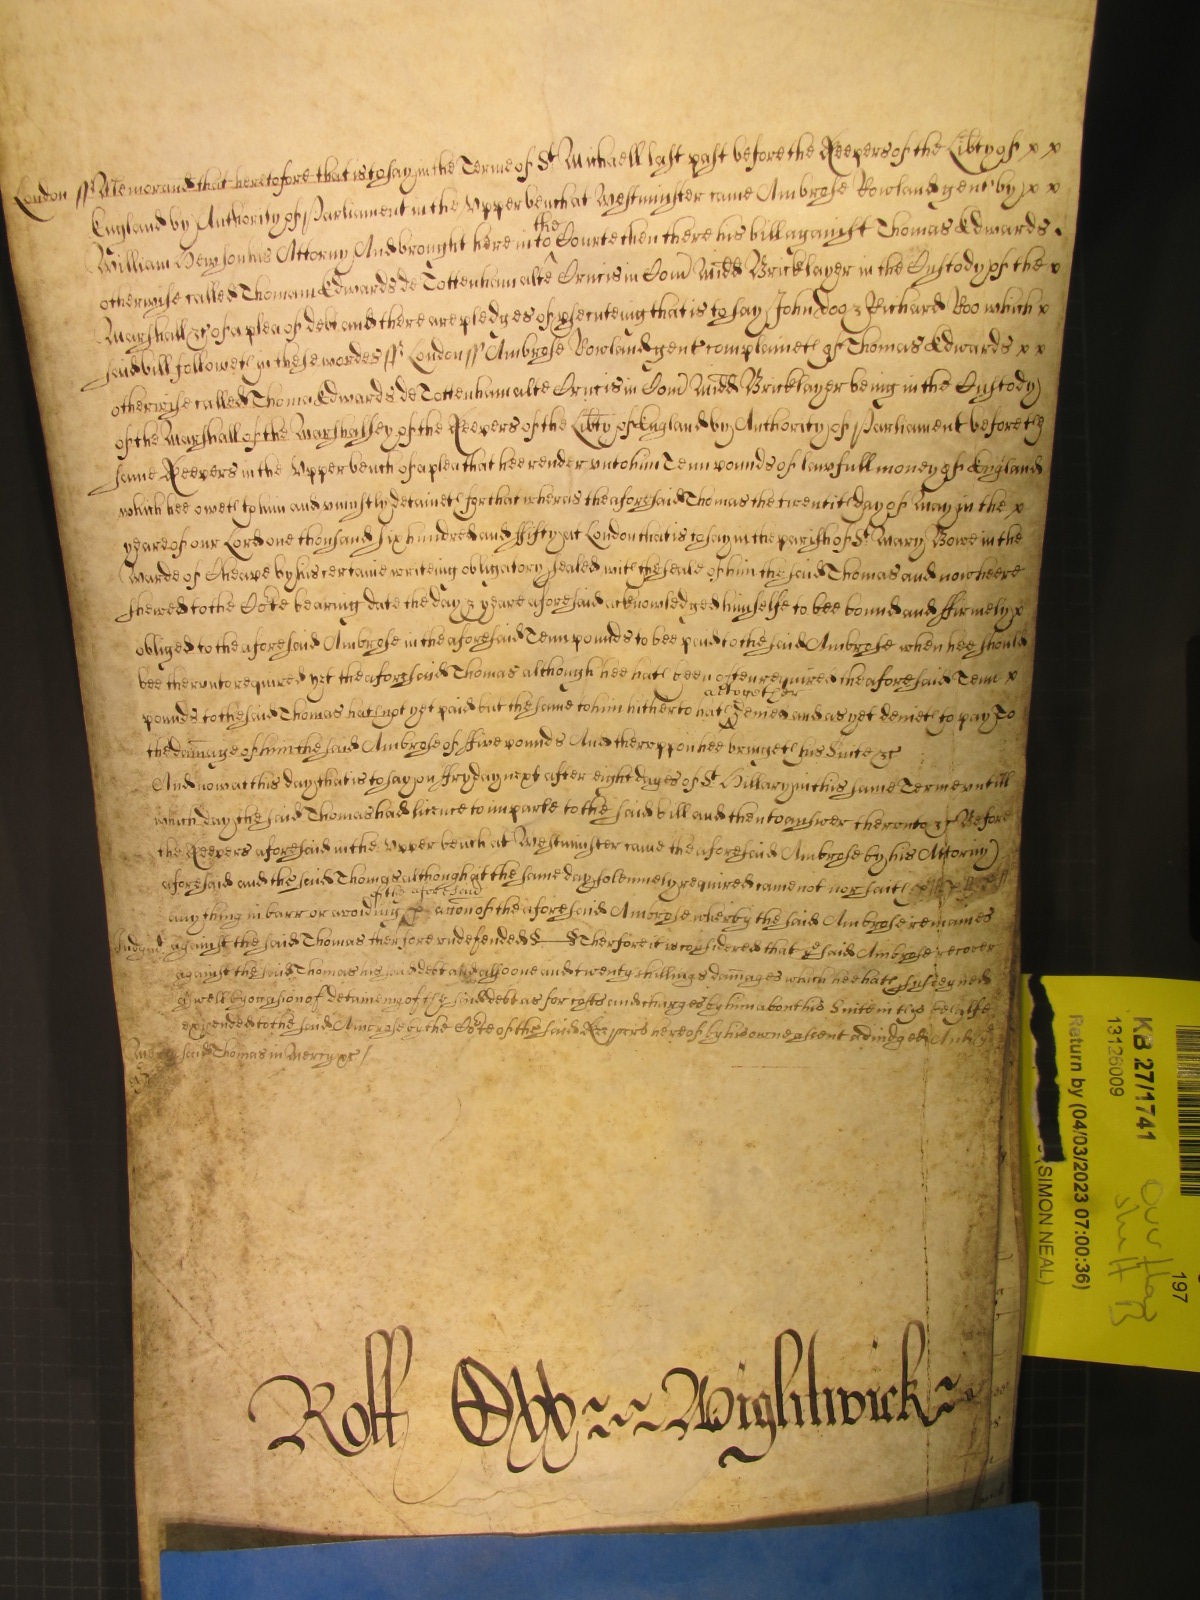 London ss Memorand that heretofore that is to say in the Terme of St Michaell last past before the Keepers of the Libty of x x
England by Authority of Parliament in the Upper bench at Westminster came Ambrose Rowland gent by x x
the
William Hewson his Attorny And brought here into Courte then there his bill against Thomas Edwards
otherwise called Thomam Edwards de Tottenham alte Crucis in Com Midd Bricklayer in the Custody of the x
Marshall &c of a plea of debt and there are pledges of prsecuteing that is to say John Doo & Richard Roo which x
said bill followeth in these wordes ss London ss Ambrose Rowland gent complaineth of Thomas Edwards x x
otherwise called Thoma Edwards de Tottenham alte Crucis in Com Midd Bricklayer being in the Custody
of the Marshall of the Marshalsey of the Keepers of the Libty of England by Authority of Parliament before the
same Keepers in the Upper bench of a plea that hee render unto him Tenn pounds of lawfull money of England
which hee oweth to him and uniustly detaineth for that wheras the aforesaid Thomas the twentith day of May in the x
yeare of our Lord one thousand six hundred and fifty at London that is to say in the parish of St Mary Bowe in the
Warde of Cheape by his certaine writeing obligatory sealed with the seale of him the said Thomas and now heere
shewed to the Corte bearing date the day & yeare aforesaid acknowledged himselfe to bee bound and ffirmely x
obliged to the aforesaid Ambrose in the aforesaid Tenn pounds to bee paid to the said Ambrose when hee should
bee therunto required yet the aforesaid Thomas although hee hath been often required the aforesaid Tenn x
altogether
pounds to the said Thomas hath not yet paid but the same to him hitherto hath denied and as yet denieth to pay To
the damage of him the said Ambrose of ffive pounds And theruppon hee bringeth his Suite &c
And now at this day that is to say on ffryday next after eight dayes of St Hillary in this same Terme untill
which day the said Thomas had licence to imparle to the said bill and then to answer therunto &c Before
the Keepers aforesaid in the Upper bench at Westminster came the aforesaid Ambrose by his Attorny
aforesaid and the said Thomas although at the same day solemnely required came not nor saith
of the aforesaid
any thing in barr or avoiding accon of the aforesaid Ambrose wherby the said Ambrose remaines
Judgmt against the said Thomas therfore undefended Therfore it is considered that ye said Ambrose recover
against the said Thomas his said debt and allso one and twenty shillings damages which hee hath susteyned
aswell by occasion of detaining of the said debt as for costs and charges by him about his Suite in this behalfe
expended to the said Ambrose by the Corte of the said Keepers hereof by his owne assent adiudged And the
said Thomas in Mercy &c
Roll Oxx Wightwick
KB 27/1741
13126009
Return by (04/03/2023 07:00:36)
(SIMON NEAL)
197